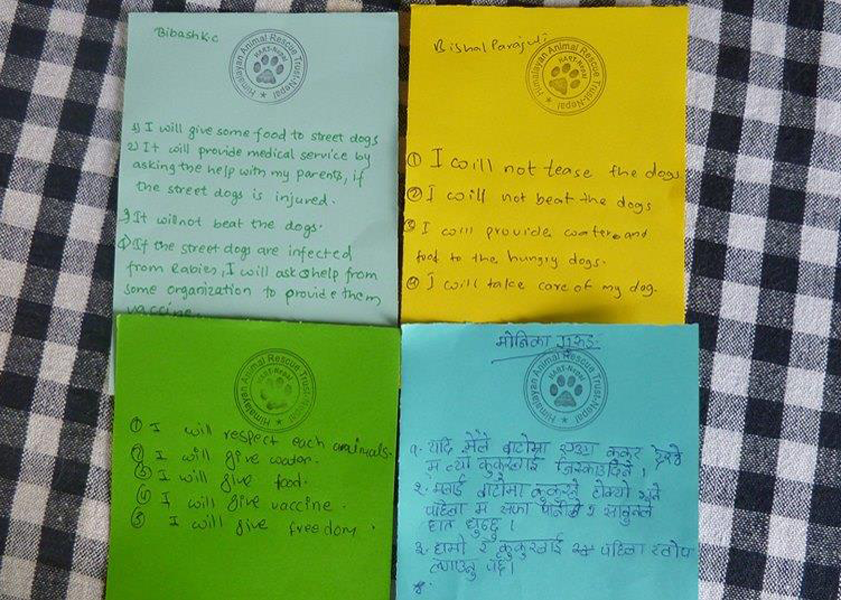 Bibash K.c
Himalayan Animal Rescue Trust-Nepal
HART-Nepal
1) I will give some food to street dogs
2) It will provide medical service by
asking the help with my parents, if
the street dogs is injured.
3) It wilnot beat the dogs.
4) If the street dogs are infected
from Rabies, I will ask help from
some organization to provide them
vaccine.
Bishal Parajuli
Himalayan Animal Rescue Trust-Nepal
HART-Nepal
① I will not tease the dogs
② I will not beat the dogs
③ I will provide water and
food to the hungry dogs.
④ I will take care of my dog.
Himalayan Animal Rescue Trust-Nepal
HART-Nepal
① I will respect each animals.
② I will give water.
③ I will give food.
④ I will give vaccine.
⑤ I will give freedom.
मोनिका
Himalayan Animal Rescue Trust-Nepal
HART-Nepal
१. यदि मैले बाटोमा एउटा कुकुर देखे
म त्यो कुकुरलाई जिस्काउदिनँ ।
२. मलाई बाटोमा कुकुरले टोक्यो भने
पहिला म सफा पानीले र साबुनले
हात धुन्छु ।
३. हाम्रो र कुकुरलाई पहिला खोप
लगाउनु पर्छ।
४.